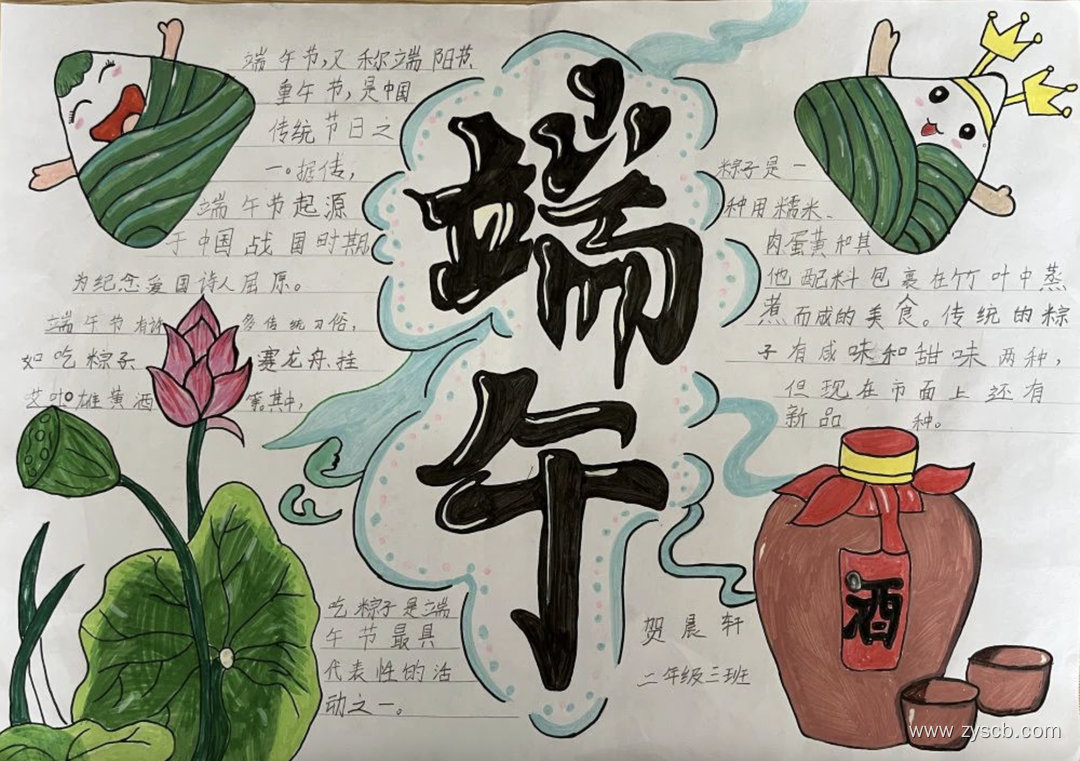 端午节,又称端阳节
重午节,是中国
传统节日之
一。据传,
端午节起源
于中国战国时期
为纪念爱国诗人屈原。
端午节有许多传统习俗,
如吃粽子 赛龙舟、挂
艾叶 雄黄酒 等。其中,
吃粽子是端
午节最具
代表性的活
动之一。
端午
粽子是一
种用糯米、
肉蛋黄和其
他配料包裹在竹叶中蒸
煮而成的美食。传统的粽
子有咸味和甜味两种,
但现在市面上还有
新品 种。
酒
贺晨轩
二年级三班
www.zyscb.com